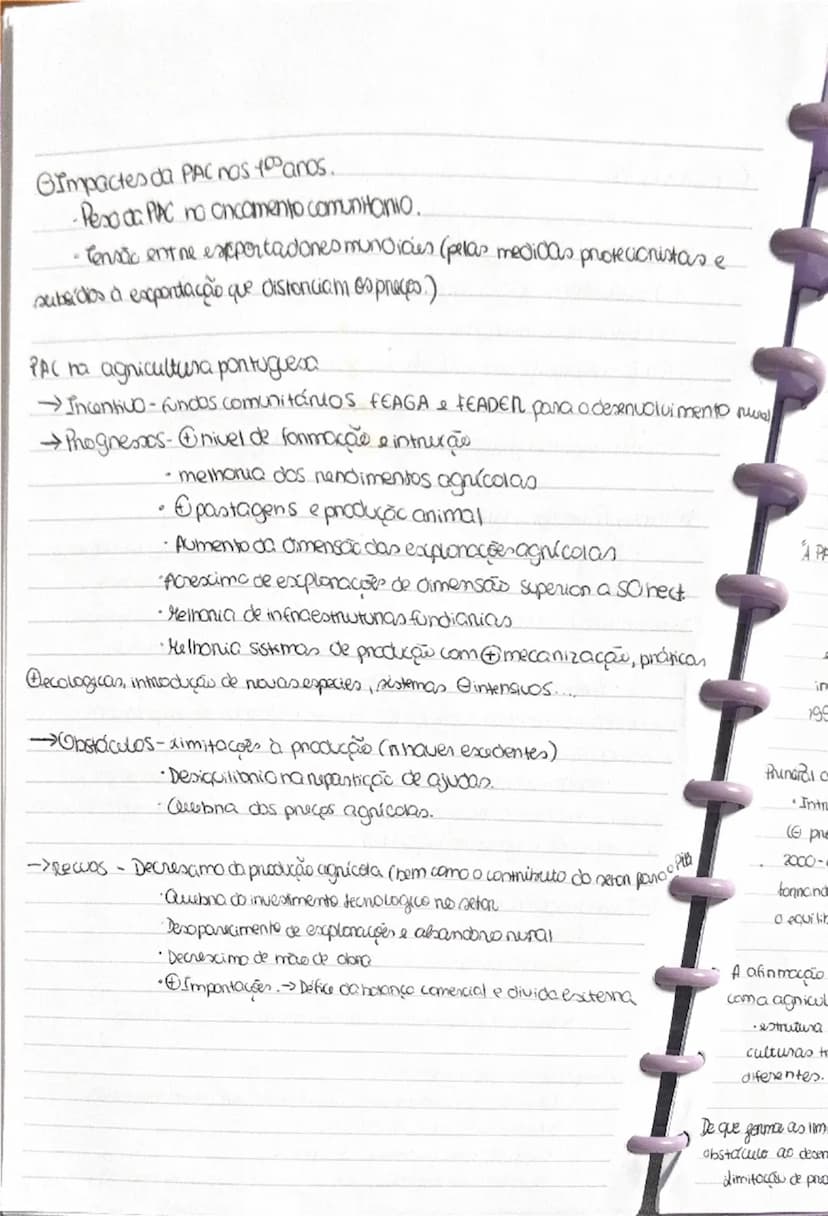 ⊖Impactes da PAC nos 1ºs anos.
· Peso da PAC no orçamento comunitário.
· Tensão entre exportadores mundiais (pelas medidas protecionistas e
subsídios à exportação que distanciam os preços.)
PAC na agricultura portuguesa
→ Incentivo - fundos comunitários FEAGA e FEADER para o desenvolvimento rural
→ Progressos - ⊕ nível de formação e intrução
· melhoria dos rendimentos agrícolas
· ⊕ pastagens e produção animal
· Aumento da dimensão das explorações agrícolas
· Acrescimo de explorações de dimensão superior a 50 hect.
· Melhoria de infraestruturas fundiarias
· Melhoria sistemas de produção com ⊕ mecanização, práticas
⊕ ecologicas, introdução de novas especies, sistemas ⊖ intensivos...,
→ Obstáculos - Limitações à produção (n haver excedentes)
· Desiquilibrio na repartição de ajudas.
· Quebra dos preços agrícolas.
→ Recuos - Decrescimo da produção agrícola (bem como o contributo do setor para o PIB
· Quebra do investimento tecnologico no setor
Desaparecimento de explorações e abandono rural
· Decrescimo de mão de obra
· ⊕ Importações. → Défice da balança comercial e divida externa
"A PA
in
199
Principal o
· Intr
(⊖ pre
2000-
tornand
o equilib
A afirmação
com a agricul
· estrutura
culturas tr
diferentes.
De que forma as lim
obstáculo ao desen
Limitação de pro